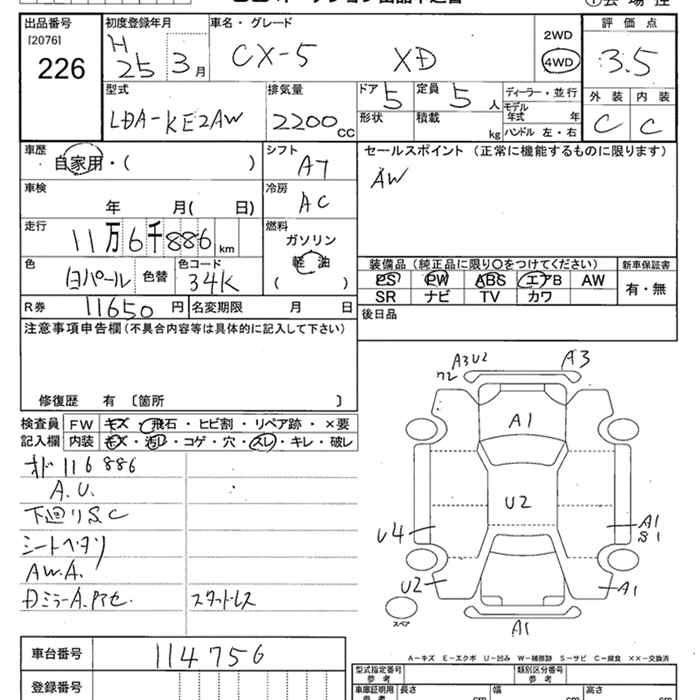 出品番号
[2076]
226
初度登録年月
H
25 3 月
車名・グレード
CX-5 XD
2WD
4WD
評価点
3.5
外装 内装
C C
型式
LDA-KE2AW
排気量
2200 CC
ドア 5
定員 5 人
形状
積載 kg
ディーラー・並行
モデル年式 年
ハンドル 左・右
車歴
自家用・( )
シフト
A7
セールスポイント (正常に機能するものに限ります)
AW
車検
年 月( 日)
冷房
AC
走行
11万6千886 km
燃料
ガソリン
軽油
( )
色
白パール
色替
色コード
34K
装備品 (純正品に限り○をつけてください)
PS PW ABS エアB AW
SR ナビ TV カワ
新車保証書
有・無
R券 11650 円
名変期限 月 日
後日品
注意事項申告欄(不具合内容等は具体的に記入して下さい)
修復歴 有 〔箇所 〕
検査員記入欄
FW キズ・飛石・ヒビ割・リペア跡・×要
内装 キズ・汚レ・コゲ・穴・スレ・キレ・破レ
オド116886
A.U.
下廻りS.C
シートヘタリ
AW.A.
スタットレス
A3U2
A3
A1
U2
U4
A1
S1
U2
A1
A1
スペア
車台番号 114756
登録番号
A-キズ E-エクボ U-凹み W-補修跡 S-サビ C-腐食 ××-交換済
型式指定番号
参考
類別区分番号
参考
車庫証明用
参考
長さ cm
幅 cm
高さ cm